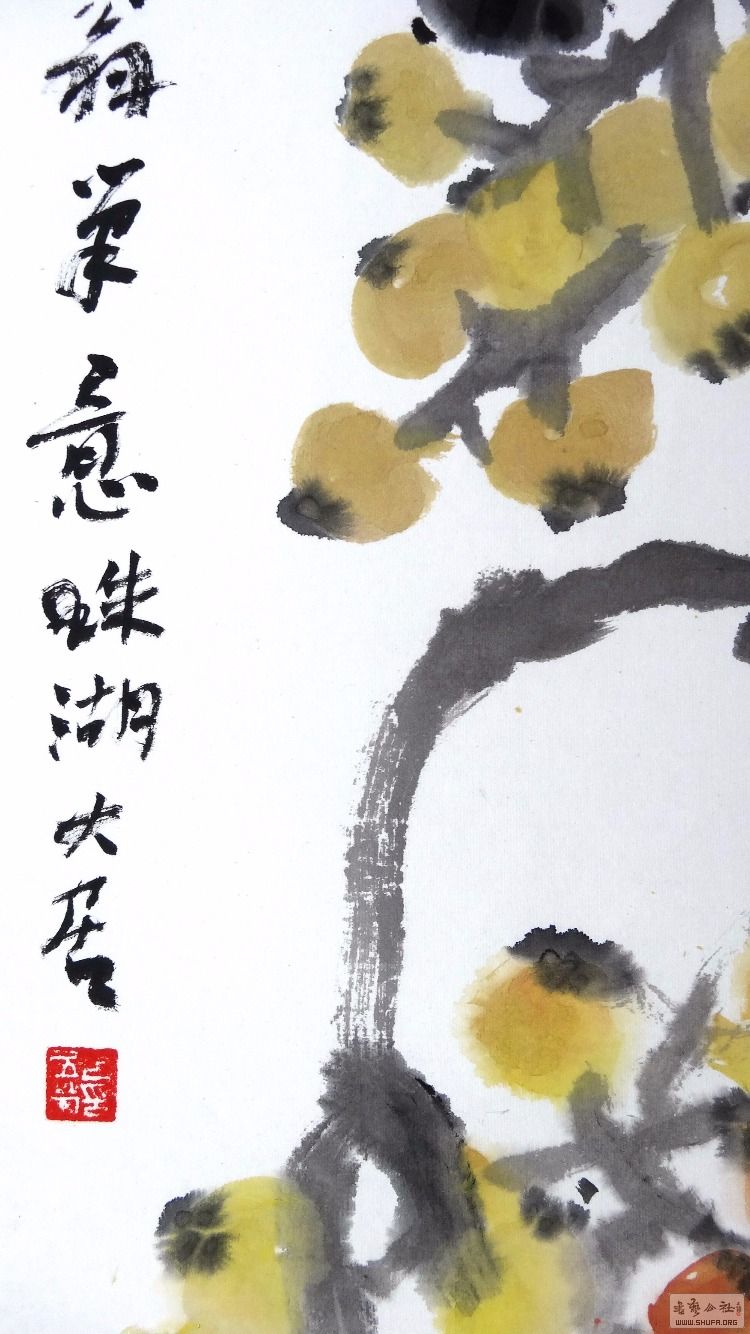 翁筆意珠湖大居
書藝公社
WWW.SHUFA.ORG